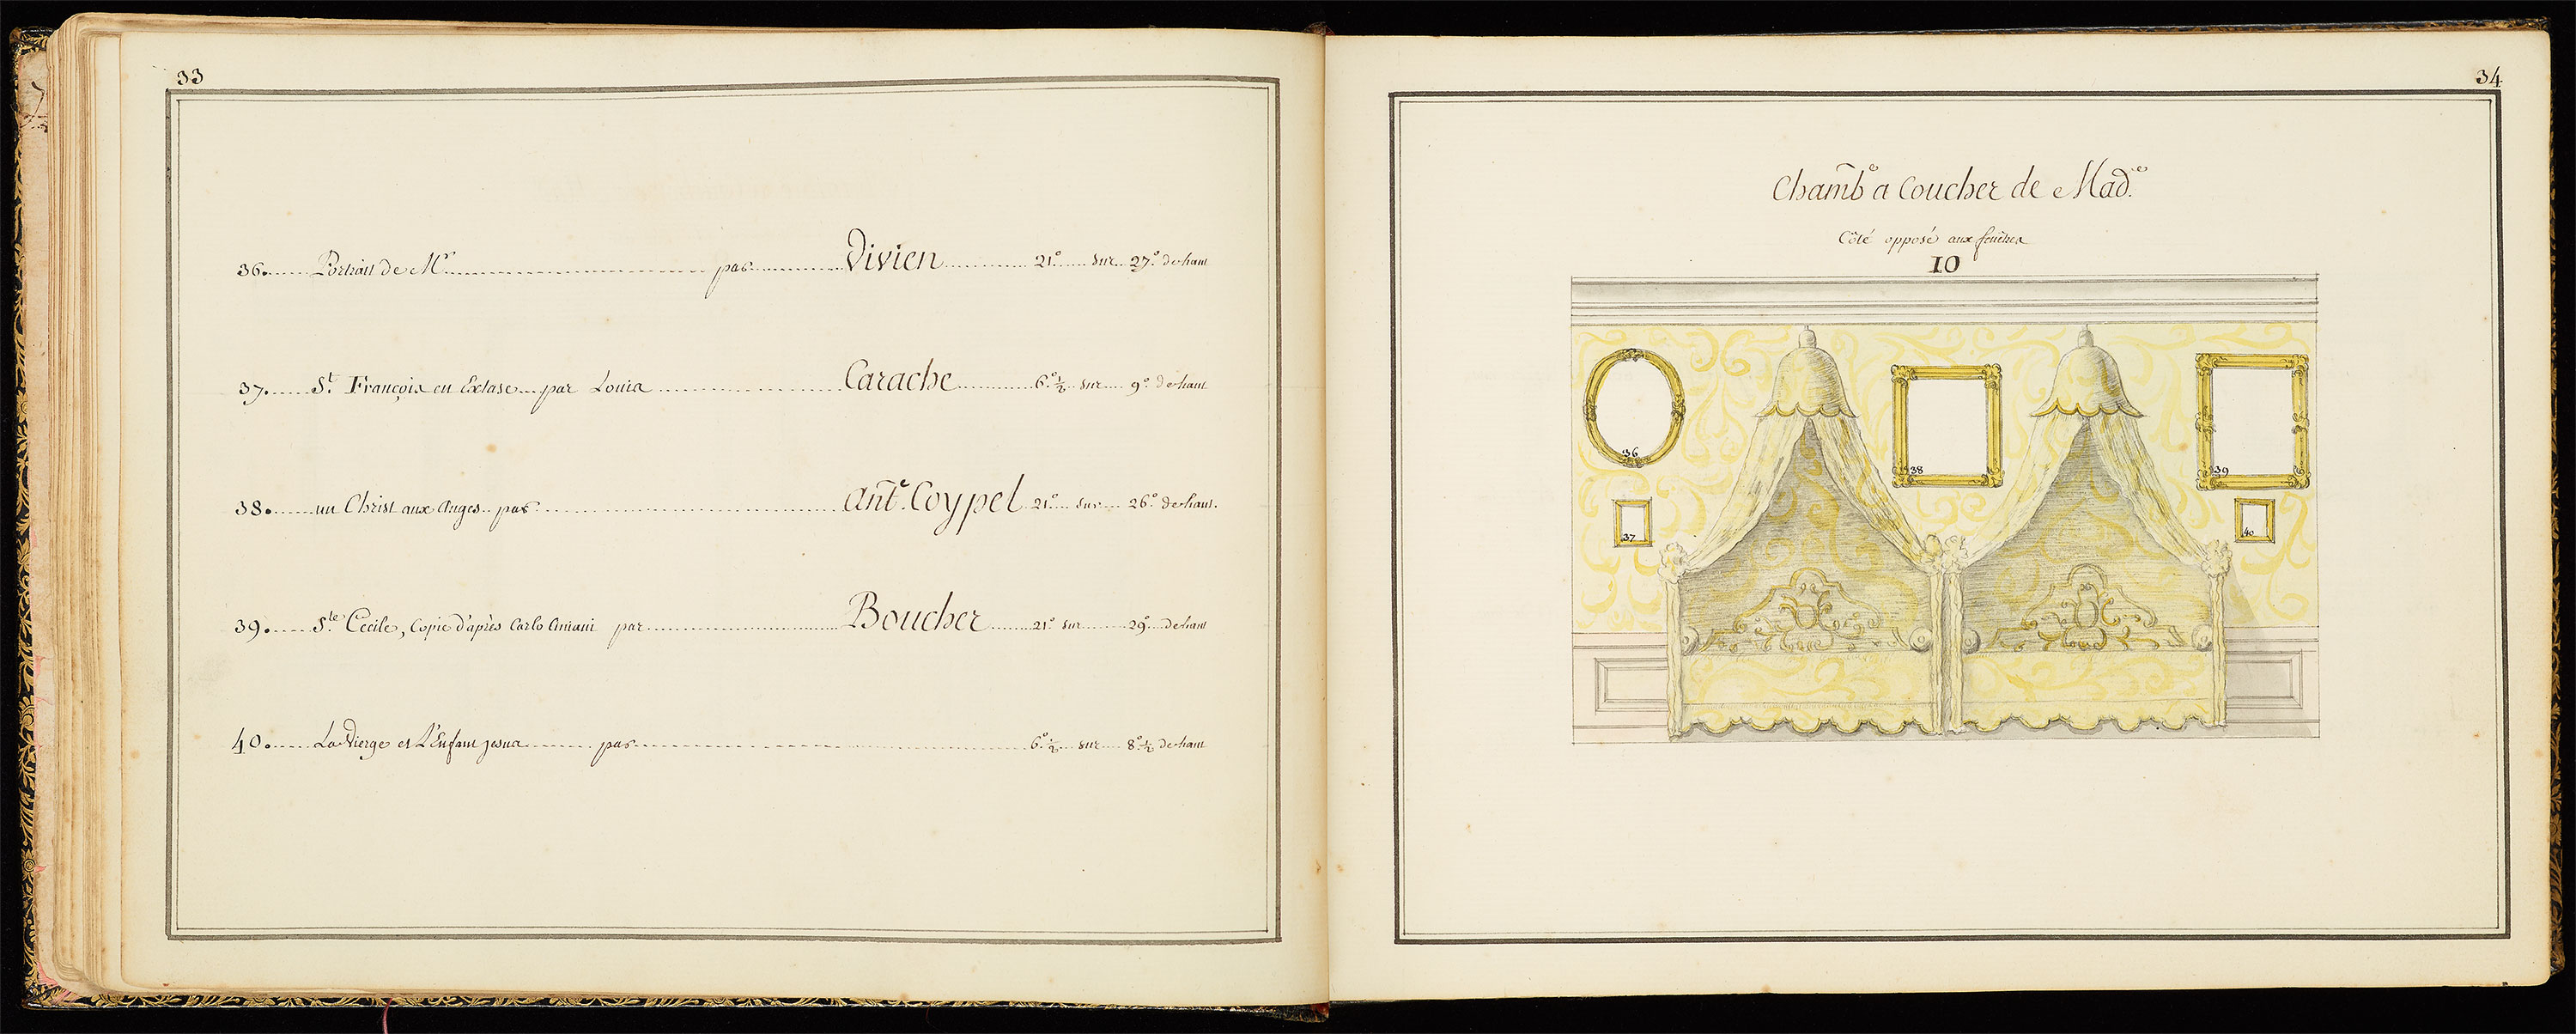 33
36. Portrait de Mr par Vivien 21° sur 27° de haut
37. St François en Extase par Louis Carache 6°½ sur 9° de haut
38. un Christ aux Anges par Ante Coypel 21° sur 26° de haut.
39. Ste Cecile, Copie d'après Carlo Cimiani par Boucher 21° sur 29° de haut
40. La Vierge et L'Enfant jesus par 6°½ sur 8°½ de haut
34
Chambe a Coucher de Made
Côté opposé aux fenêtres
10
36
38
39
37
40